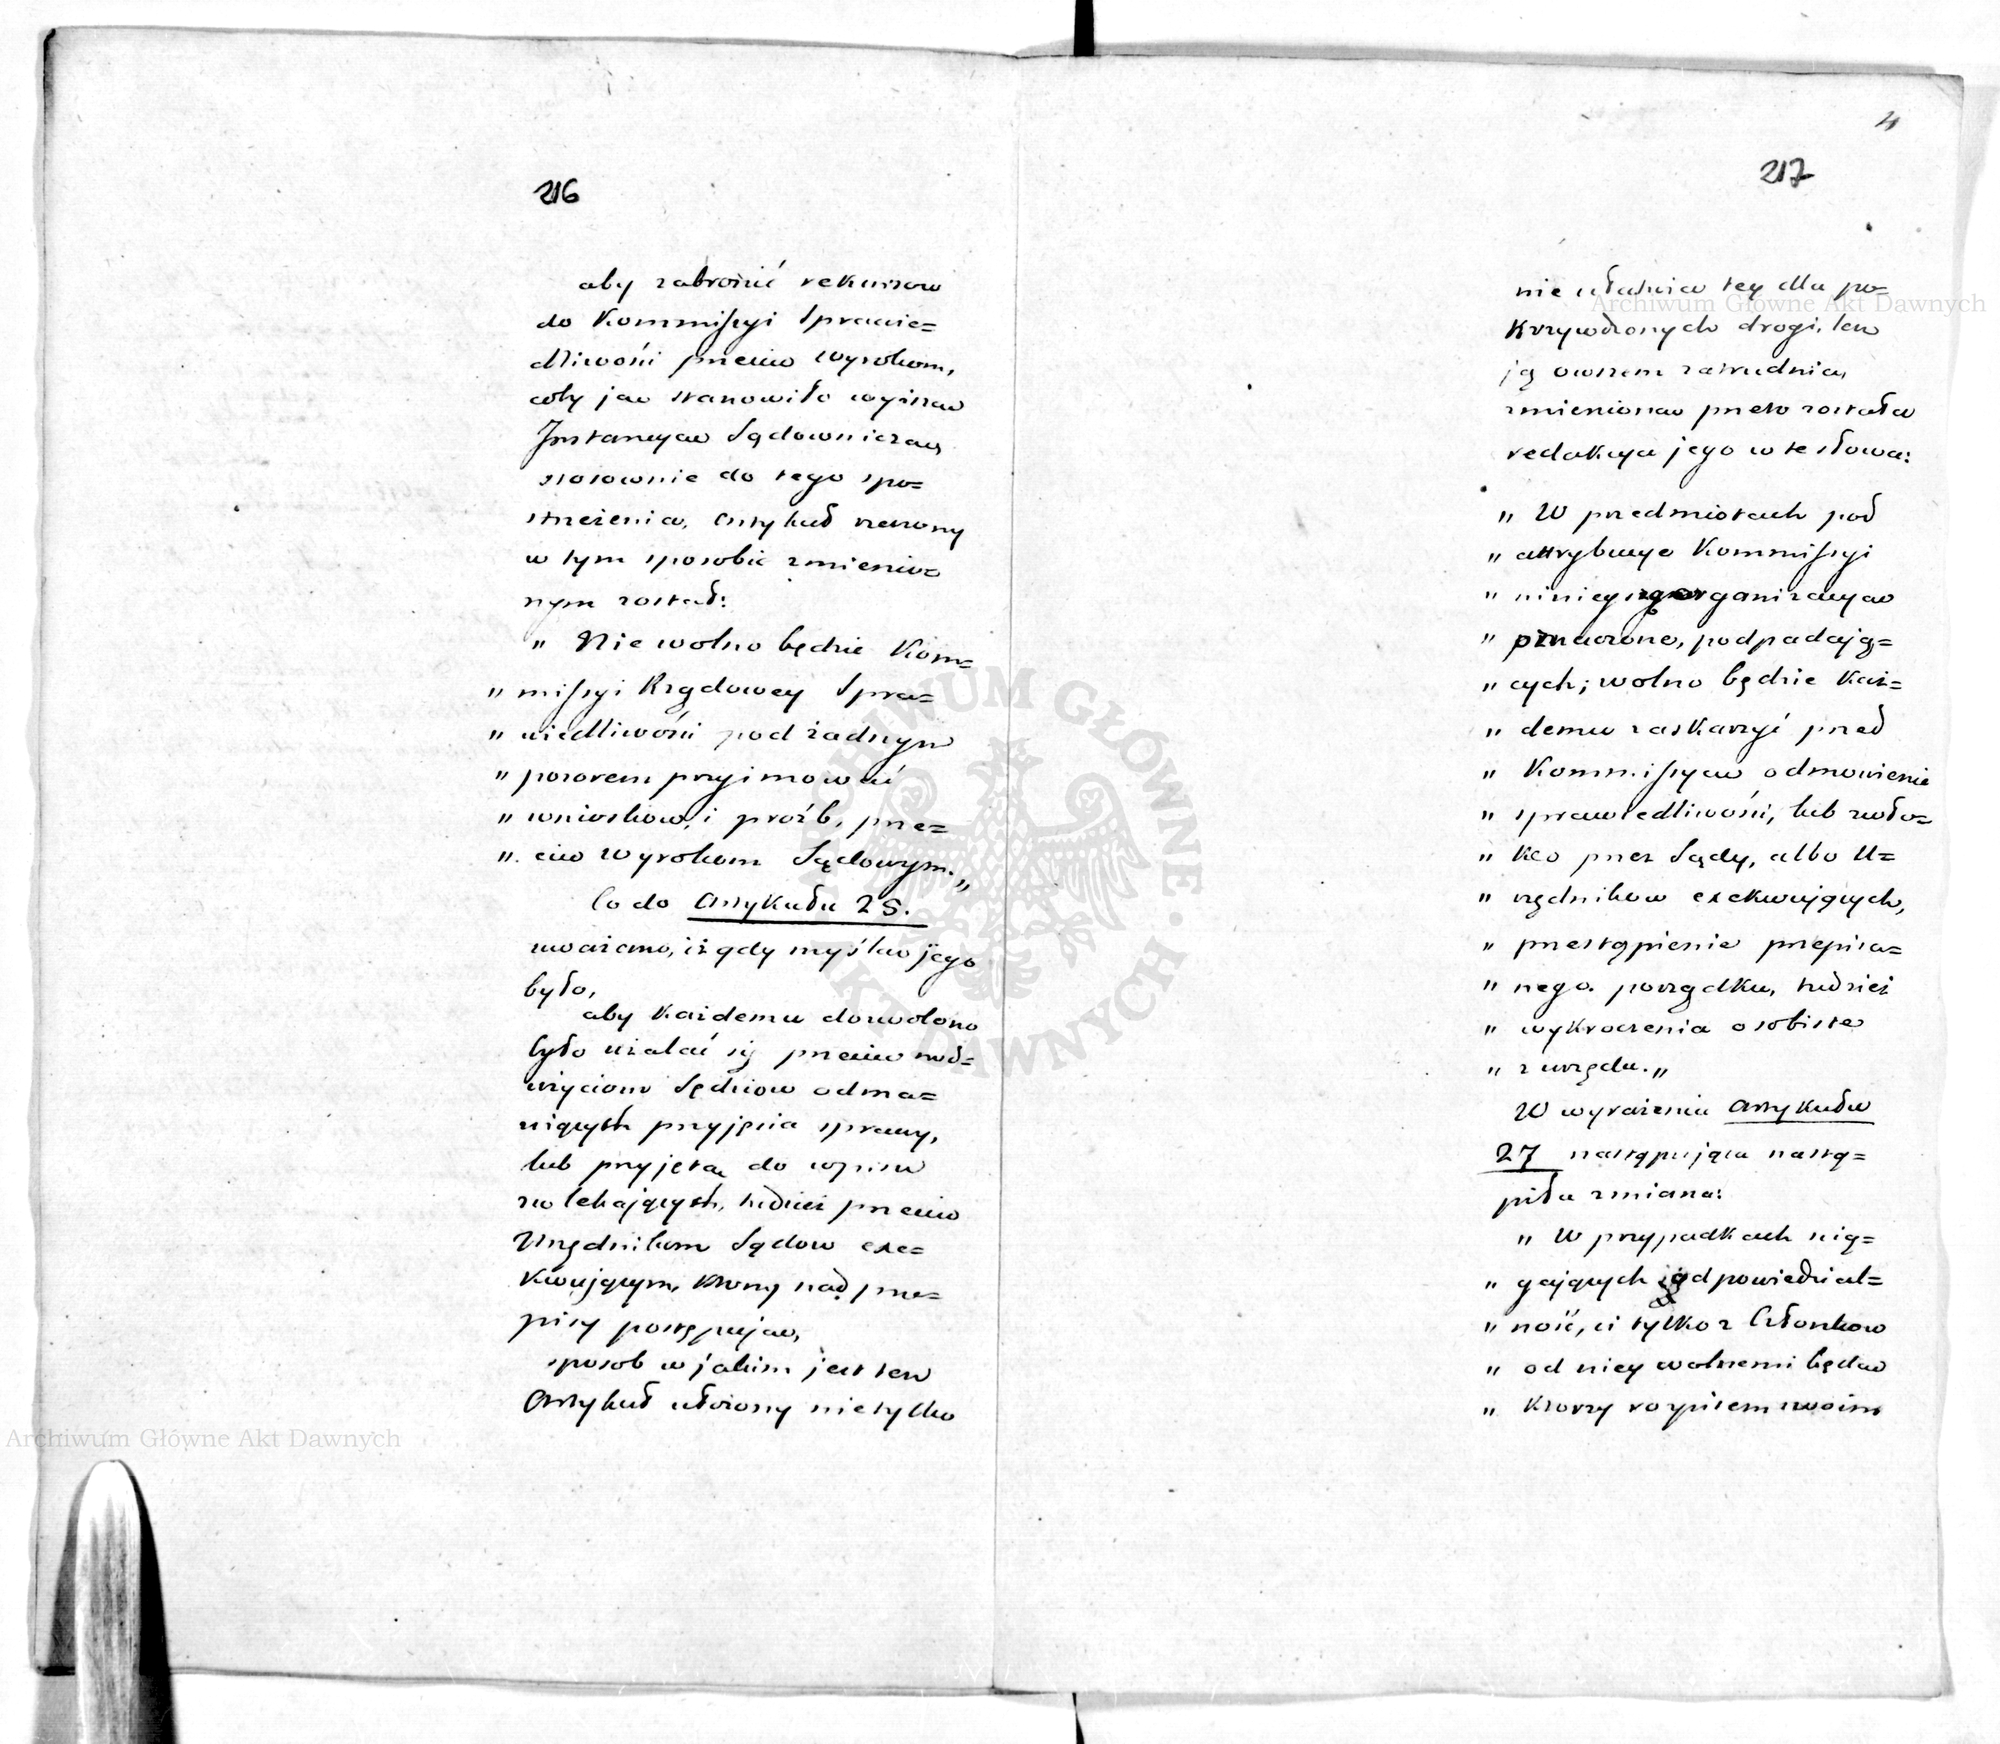 216
aby zabronić rekursow
do Kommissyi Sprawie=
dliwości przeciw wyrokom,
coby jaw stanowiło wyższaw
Instancyaw Sądowniczaw,
stosownie do tego spo=
strzeżenia, Artykuł rzeczony
w tym sposobie zmienio=
nym został:
„ Nie wolno będzie Kom=
„ missyi Rządowey Spra=
„ wiedliwości pod żadnym
„ pozorem przyimować
„ wniosków, i próźb, prze=
„ ciw wyrokom Sądowym. „
Co do Artykułu 25.
uważano, iż gdy myślaw jego
było,
aby Każdemu dozwolono
było użalać się przeciw nad=
użyciom Sędziow odma=
wiących przyjęcia sprawy,
lub przyjętą do wpisu
zwlekających, tudzież przeciw
Urzędnikom Sądow exe=
kwującym, Ktorzy nad prze=
pisy postępujaw,
sposob w jakim jest ten
Artykuł ułożony nie tylko
4
217
nie ułatwia tey dla po=
Krzywdzonych drogi, lecz
ją owszem zatrudnia,
zmieniona przeto została
redakcya jego w te słowa:
„ W przedmiotach pod
„ attrybucye Kommissyi
„ organizacyaw
„ oznaczone, podpadają=
„ cych; wolno będzie Każ=
„ demu zaskarżyć przed
„ Kommissyaw odmowienie
„ sprawiedliwości, lub zwło=
„ Kę przez Sądy, albo U=
„ rzędnikow exekwujących,
„ przestąpienie przepisa=
„ nego porządku, tudzież
„ wykroczenia osobiste
„ z urzędu. „
W wyrażeniu Artykułu
27 następująca nastą=
piła zmiana:
„ W przypadkach
„ gających odpowiedzial=
„ ność, ci tylko z Członkow
„ od niey wolnemi będaw
„ Ktorzy
Archiwum Główne Akt Dawnych
Archiwum Główne Akt Dawnych
ARCHIWUM GŁÓWNE AKT DAWNYCH